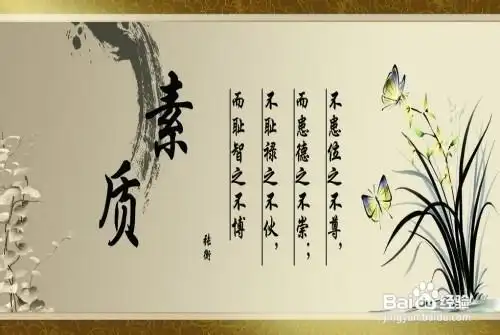 素质
不患位之不尊,
而患德之不崇;
不耻禄之不伙,
而耻智之不博
张衡
Baidu经验
jingyan.baidu.com